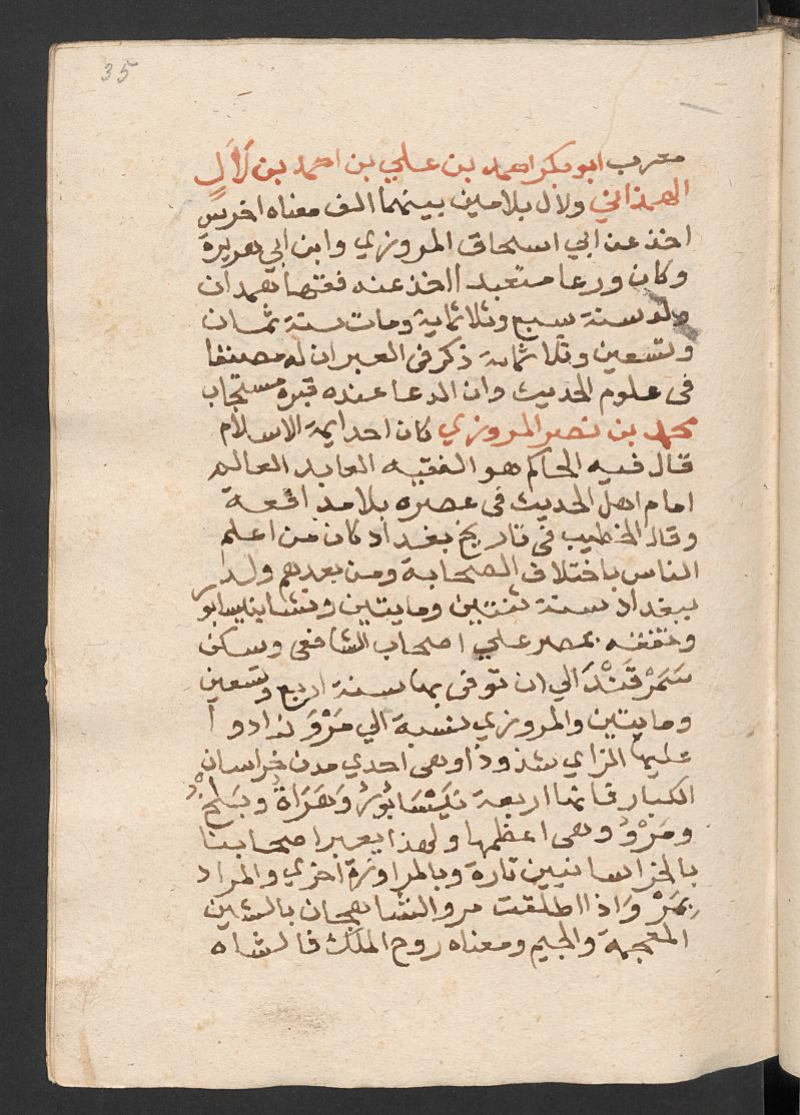 35
معرب ابو بكر احمد بن علي بن احمد بن لَالٍ
الهمذاني ولال بلامين بينهما الف معناه اخرس
اخذ عن ابي اسحاق المروزي وابن ابي هريرة
وكان ورعا متعبدا اخذ عنه فقها همدان
ولد سنة سبع وثلاثماية ومات سنة ثمان
وتسعين وثلاثماىة ذكر في العبر ان له مصنفا
فى علوم الحديث وان الدعا عنده قبره مستجاب
محمد بن نصر المروزي كان احد ايمة الاسلام
قال فيه الحاكم هو الفقيه العابد العالم
امام اهل الحديث فى عصره بلا مدافعة
وقال الخطيب فى تاريخ بغداد كان من اعلم
الناس باختلاف الصحابة ومن بعدهم ولد
ببغداد سنة ثنتين ومايتين ونشا بنيسابور
وتفقه بمصر علي اصحاب الشافعى وسكن
سَمَرْقَنْدَ الي ان توفى بها سنة اربع وتسعين
ومايتين والمروزي نسبة الي مَرْوَ زادوا
عليها الزاي شذوذا وهى احدي مدن خراسان
الكبار فانها اربعة نَيْسَابُوْرُ وَهَرَاةُ وبَلْخُ
ومَرْوُ وهى اعظمها ولهذا يعبر اصحابنا
بالخراسانيين تارة وبالمراوزة اخري والمراد
بِمَرْوَ اذا اطلقت مرو الشاهجان بالشين
المعجمة والجيم ومعناه روح الملك فالشاه